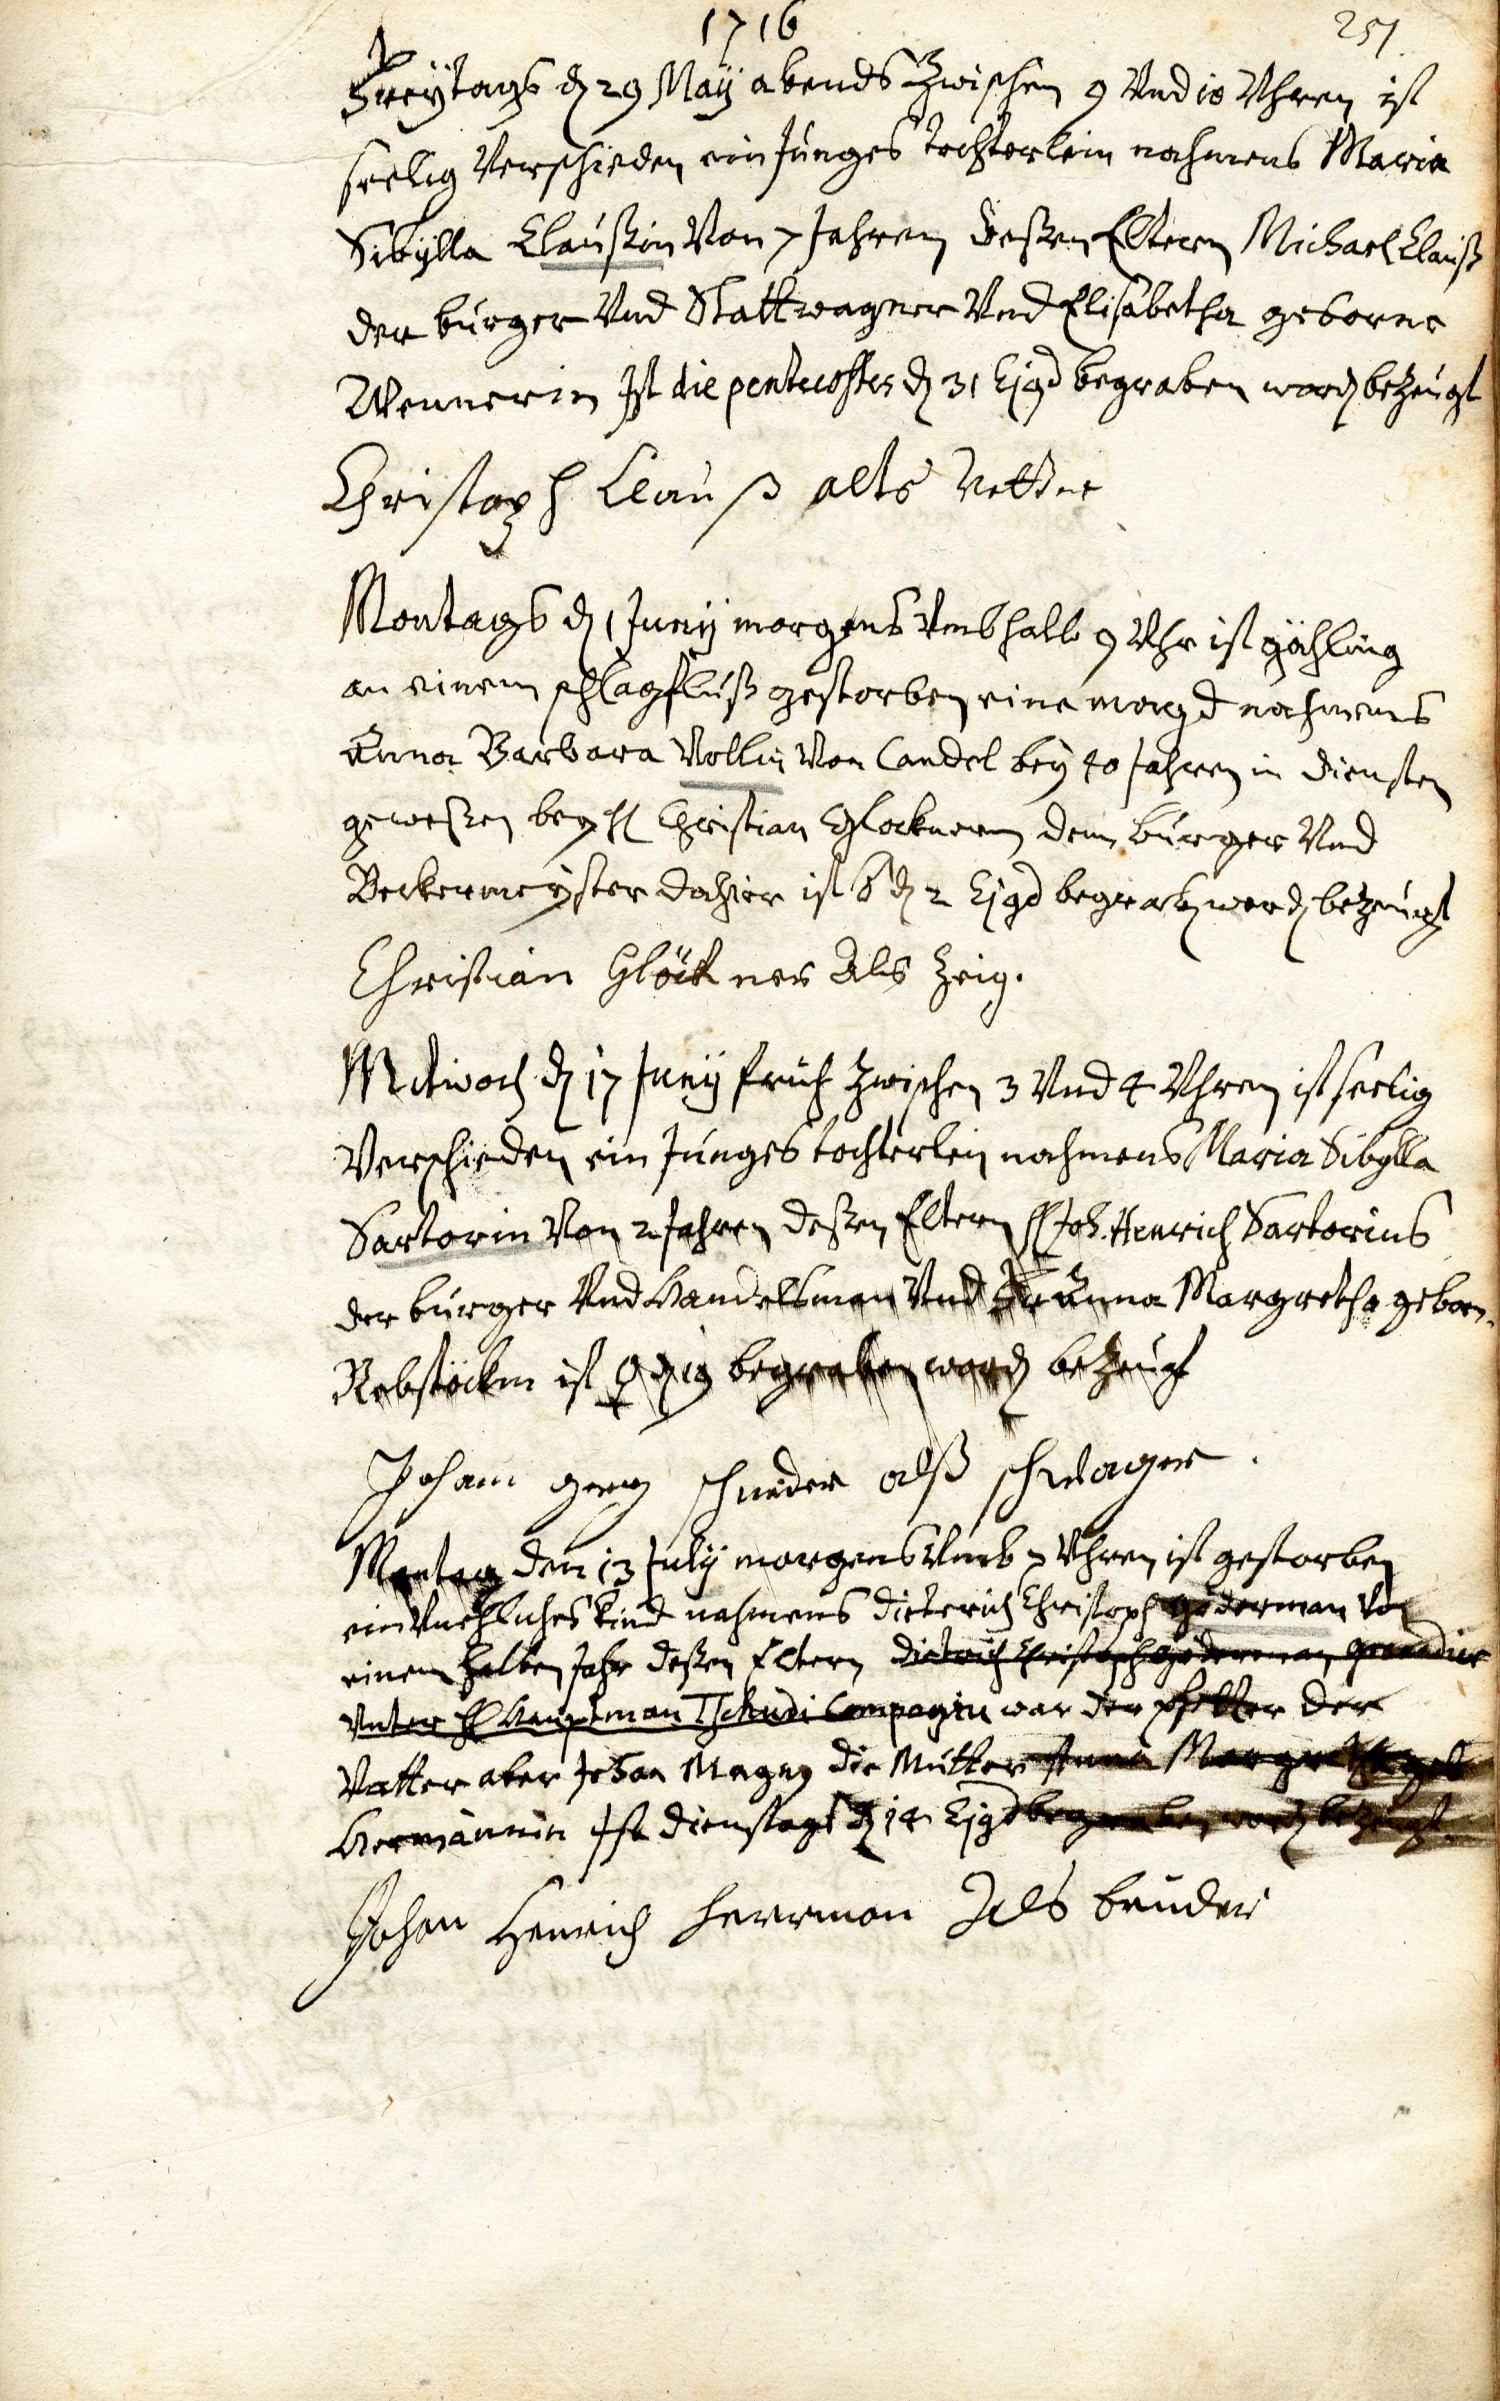 1716
251.
Freÿtags d 29 Maÿ abends Zwischen 9 Vnd 10 Vhren ist
seelig Verschieden ein Junges tochterlein nahmens Maria
Sibÿlla Claußin Von 7 Jahren deßen Eltern Michael Clauß
der burger Vnd Stattwagner Vnd Elisabetha geborne
Wennerin Ist die pentecostes d 31 Ejgd begraben word bezeugt
Christoph Clauß alts Vetter
Montags d 1 Junÿ morgens Vmb halb 9 Vhr ist gähling
an einem schlagfluß gestorben eine magd nahmens
Anna Barbara Vollin Von Candel beÿ 40 Jahren in diensten
geweßen beÿ H Christian Glocknern dem burger Vnd
Beckermeÿster dahier ist d 2 Ejgd begrab word bezeugt
Christian Glöckner Als Zeig.
Mitwoch d 17 Junÿ fruh Zwischen 3 Vnd 4 Vhren ist seelig
Verschieden ein Junges tochterlein nahmens Maria Sibÿlla
Sartorin Von 2 Jahren deßen Eltern H Joh. Henrich Sartorius
der burger Vnd Handelsman Vnd Anna Margretha geborn.
Rebstöckin ist ♀ d 19 begraben word bezeugt
Johann georg schneder alß schwager.
Montag den 13 Julÿ morgens Vmb 7 Vhren ist gestorben
ein Vnehliches kind nahmens dieterich Christoph goderman Von
einem halben Jahr deßen Eltern dietrich Christoph goderman grenadier
Vnter H Hauptman Tschudi Compagni war der pfetter der
Vatter aber Johan Magnÿ die Mutter Anna Margretha geb
Hermännin Ist dienstags d 14 Ejgd begraben word bezeugt.
Johan Henrich herrman Als bruder